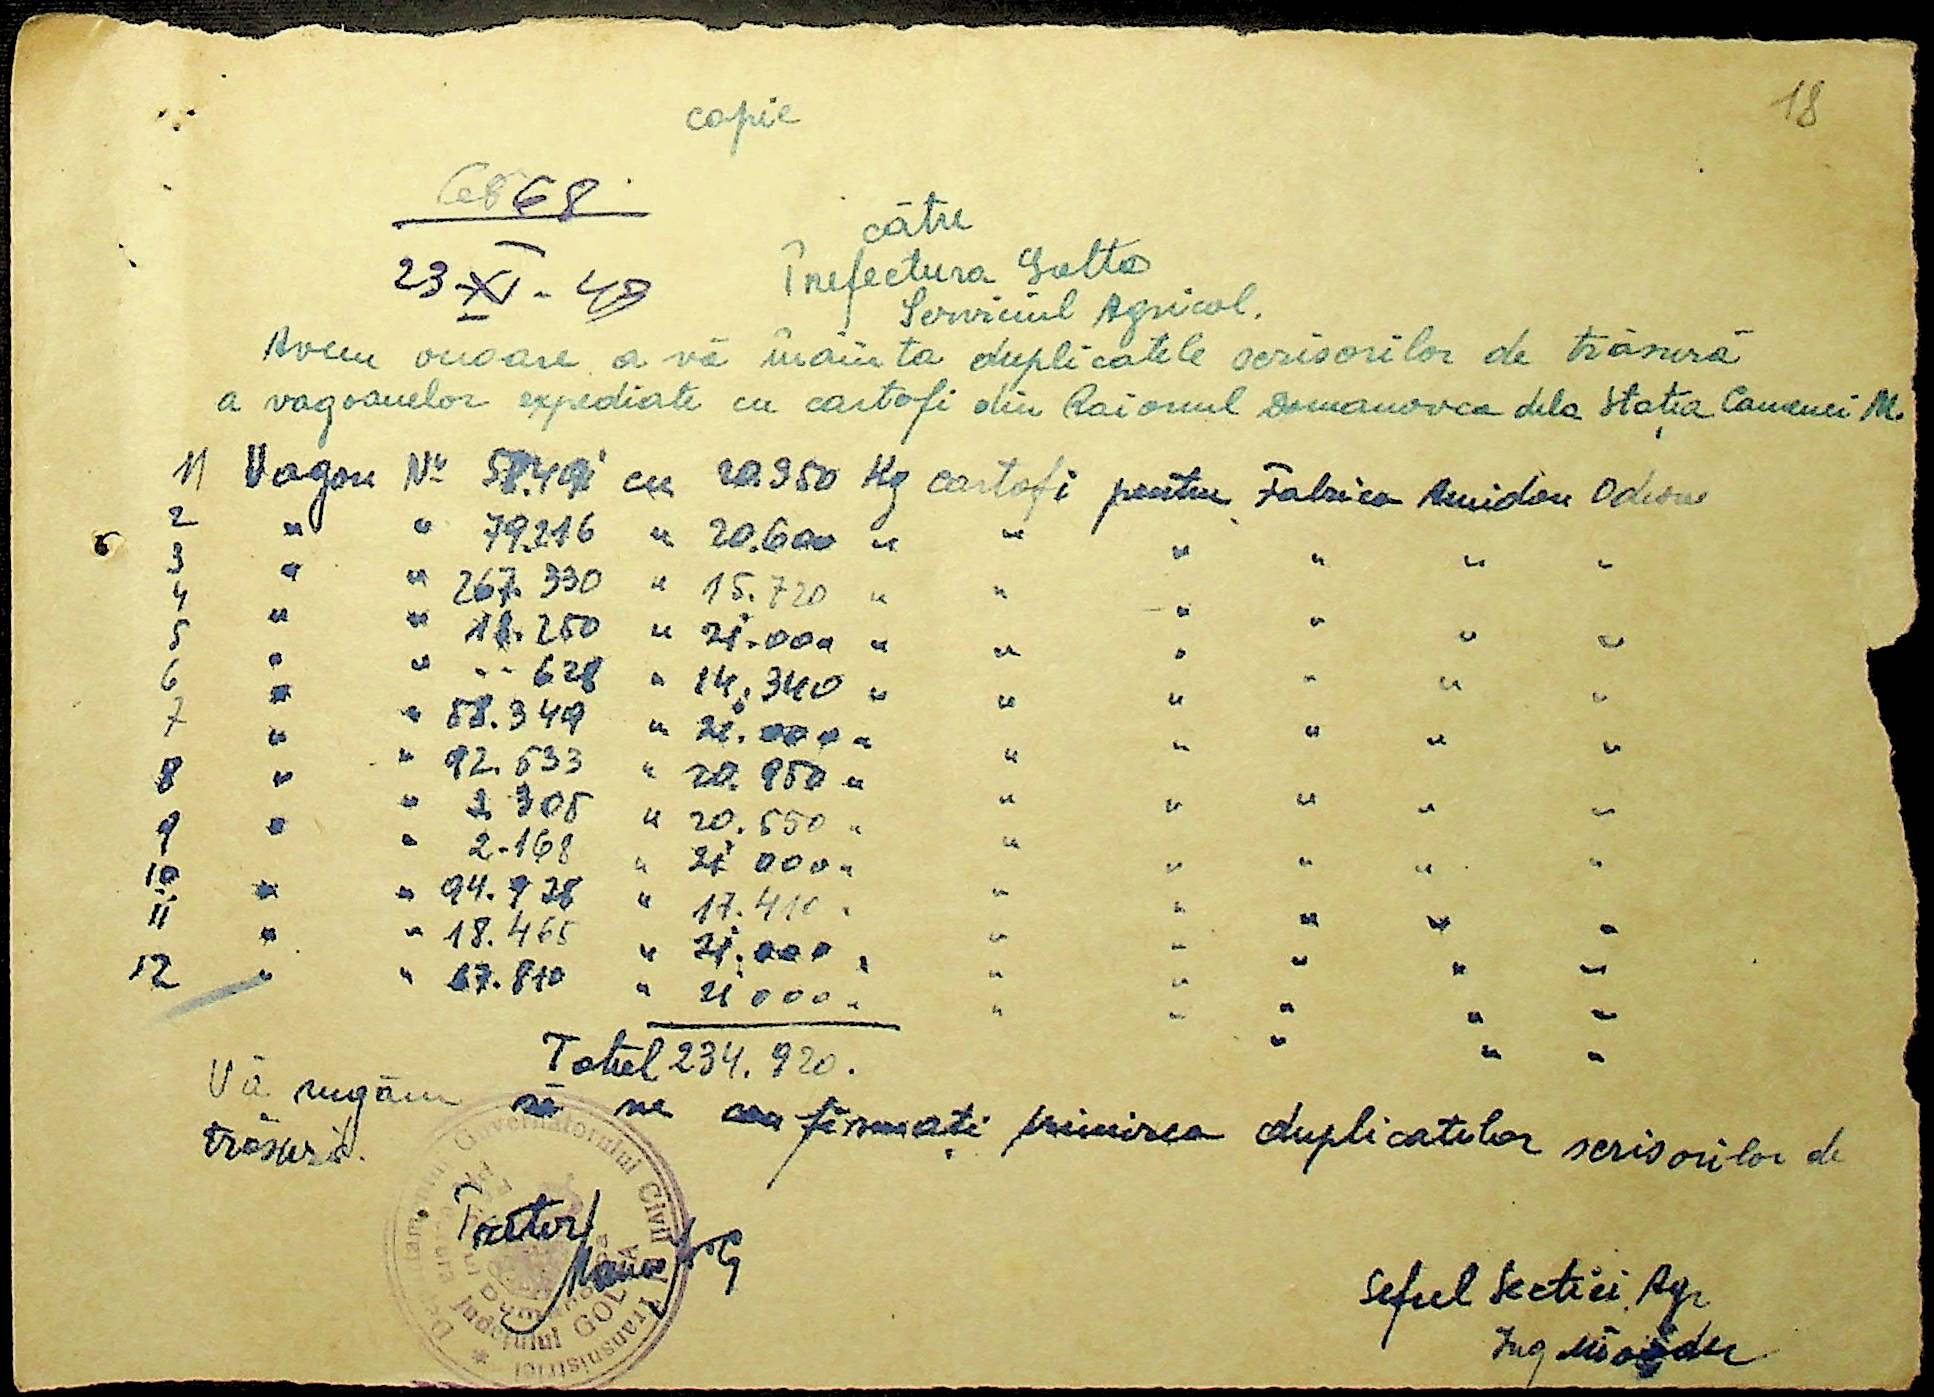 copie
18
6868
23-XI-42
către
Prefectura Golta
Serviciul Agricol.
Avem onoare a vă înainta duplicatele scrisorilor de trăsură
a vagoanelor expediate cu cartofi din Raionul Domanovca dela Stația Camenei M.
1) Vagon No cu 20.950 Kg cartofi pentru Fabrica Amidon Odesa
2 " " 79.216 " 20.600 " " " " " "
3 " " 267.330 " 15.720 " " " " " "
4 " " 250 " 21.000 " " " " " "
5 " " -- 628 " 14.340 " " " " " "
6 " " 58.349 " 21.000 " " " " " "
7 " " 92.533 " 20.950 " " " " " "
8 " " 305 " 20.550 " " " " " "
9 " " 2.168 " 21.000 " " " " " "
10 " " 94.928 " 17.410 " " " " " "
11 " " 18.465 " 21.000 " " " " " "
12 " " 67.810 " 21.000 " " " " " "
Total 234.920.
Vă rugăm să ne confirmați primirea duplicatelor scrisorilor de
trăsură.
Pretor
Guvernatorului Civil Transnistriei
Județului GOLTA
Șeful Secției Agr
Ing